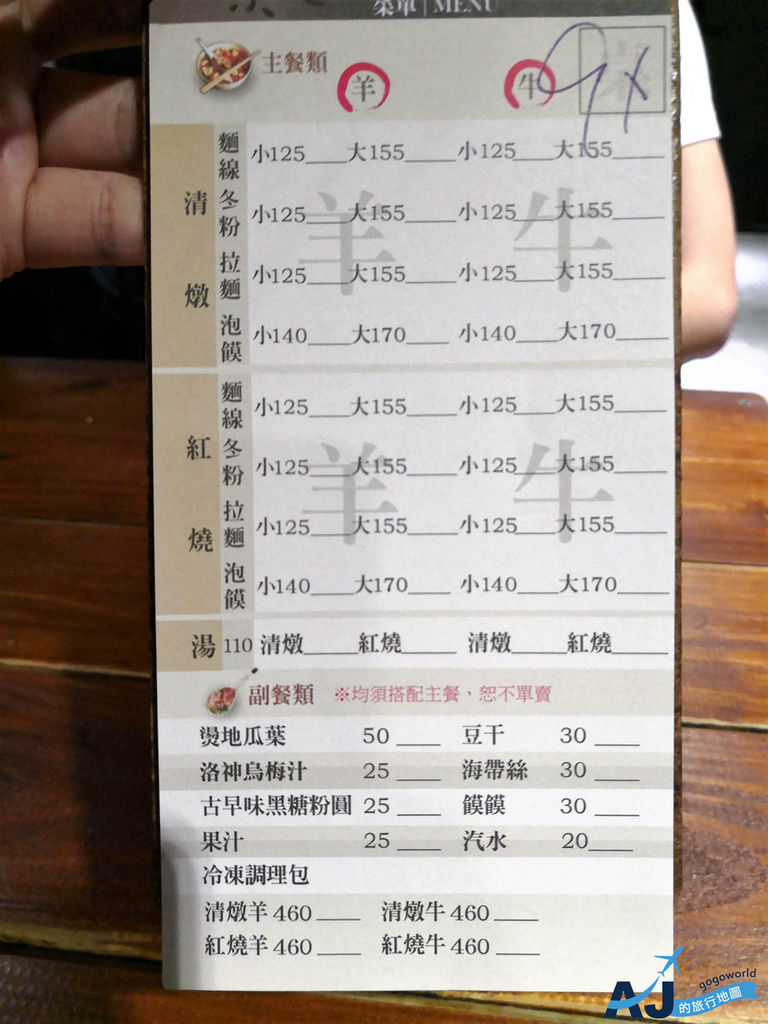 菜單 | MENU
主餐類 羊 牛 9x
清燉
麵線 小125____大155____小125____大155____
冬粉 小125____大155____小125____大155____
拉麵 小125____大155____小125____大155____
泡饃 小140____大170____小140____大170____
羊 牛
紅燒
麵線 小125____大155____小125____大155____
冬粉 小125____大155____小125____大155____
拉麵 小125____大155____小125____大155____
泡饃 小140____大170____小140____大170____
羊 牛
湯 110 清燉____紅燒____清燉____紅燒____
副餐類 ※均須搭配主餐,恕不單賣
燙地瓜葉 50 ____ 豆干 30 ____
洛神烏梅汁 25 ____ 海帶絲 30 ____
古早味黑糖粉圓 25 ____ 饃饃 30 ____
果汁 25 ____ 汽水 20____
冷凍調理包
清燉羊 460 ____ 清燉牛 460 ____
紅燒羊 460 ____ 紅燒牛 460 ____
gogoworld
AJ的旅行地圖